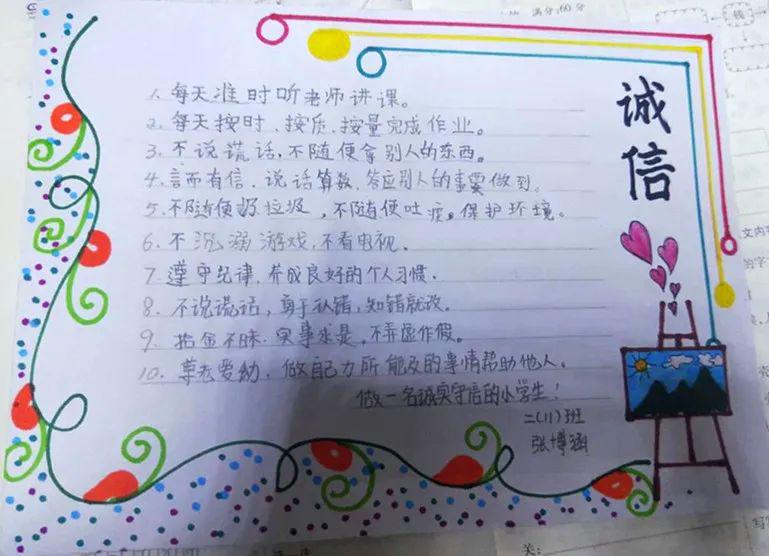 诚信
1. 每天准时听老师讲课。
2. 每天按时、按质、按量完成作业。
3. 不说谎话,不随便拿别人的东西。
4. 言而有信,说话算数,答应别人的事要做到。
5. 不随便扔垃圾,不随便吐痰。保护环境。
6. 不沉溺游戏,不看电视。
7. 遵守纪律,养成良好的个人习惯。
8. 不说谎话,勇于认错,知错就改。
9. 拾金不昧,实事求是,不弄虚作假。
10. 尊老爱幼,做自己力所能及的事情帮助他人。
做一名诚实守信的小学生!
二(11)班
张博涵
满分:60分